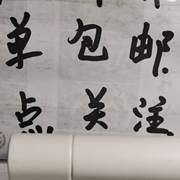 单包邮
点关注